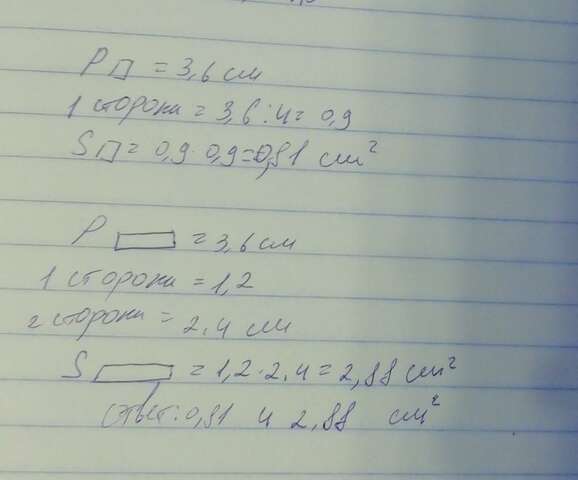 P▱ = 3,6 см
1 сторона = 3,6 : 4 = 0,9
S▱ = 0,9 · 0,9 = 0,81 см²
P▭ = 3,6 см
1 сторона = 1,2
2 сторона = 2.4 см
S▭ = 1,2 · 2.4 = 2,88 см²
Ответ: 0,81 и 2,88 см²